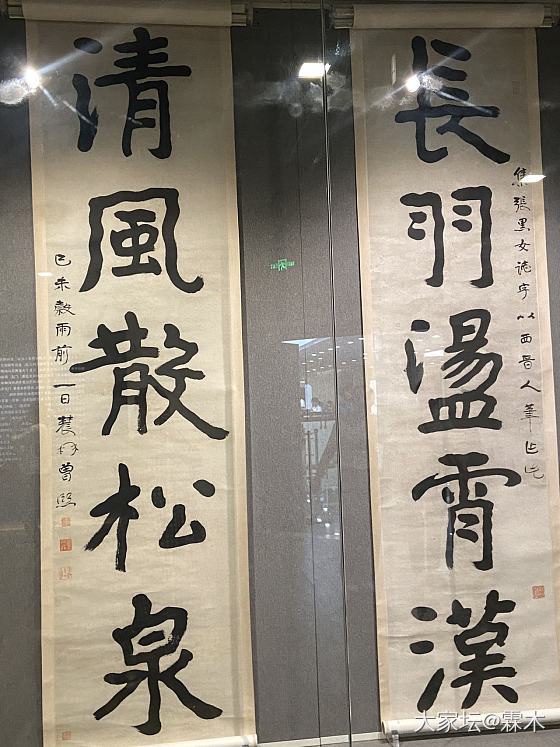 長羽盪霄漢
集張黑女誌字以西晉人筆作此
清風散松泉
己未穀雨前一日農髯曾熙
大家坛@霖木